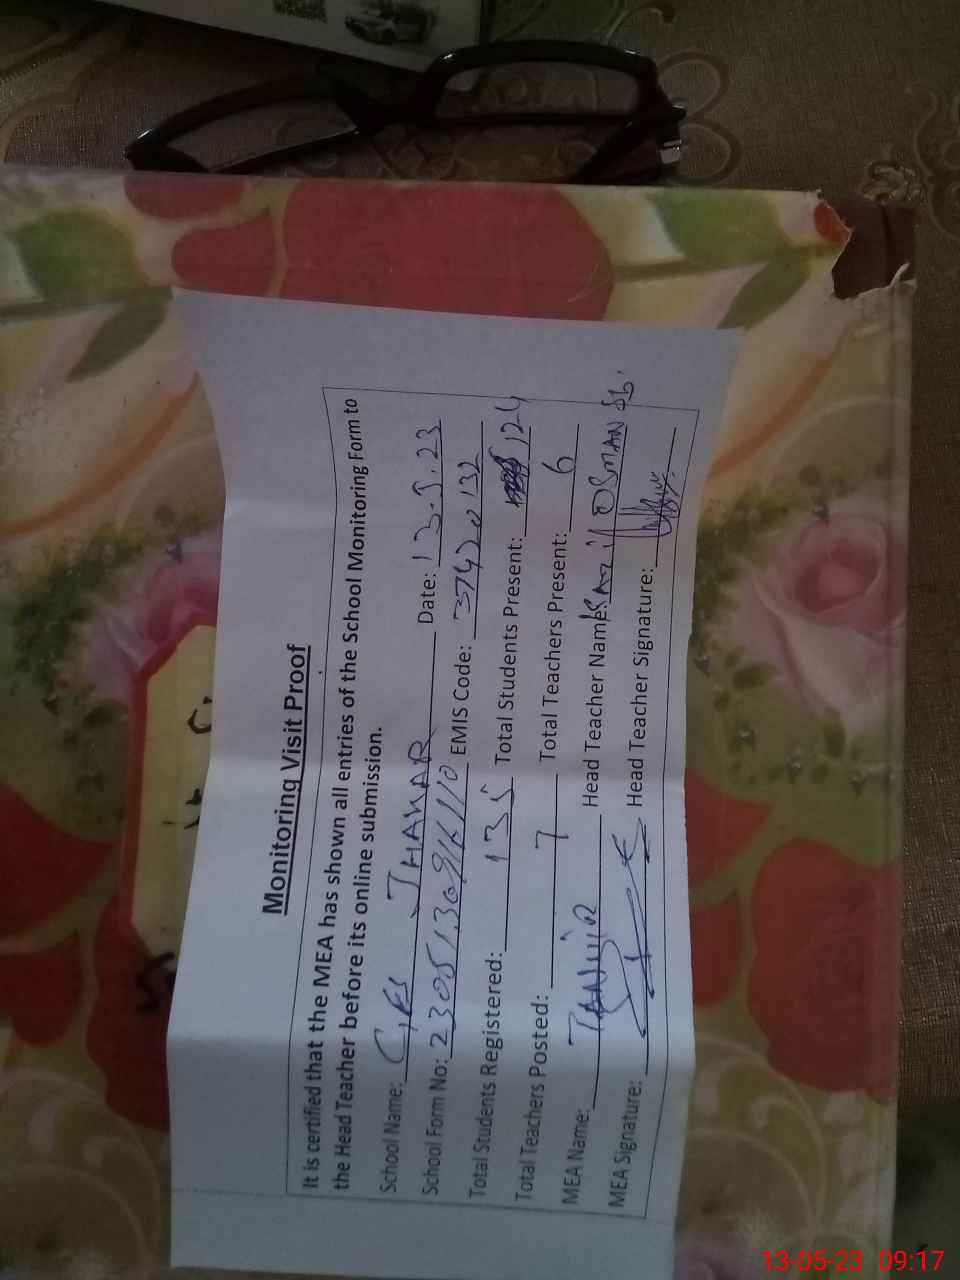 Monitoring Visit Proof
It is certified that the MEA has shown all entries of the School Monitoring Form to
the Head Teacher before its online submission.
School Name: GES JHAWAR Date: 13-5-23
School Form No: EMIS Code: 37420132
Total Students Registered: 135 Total Students Present: 124
Total Teachers Posted: 7 Total Teachers Present: 6
MEA Name: Head Teacher Name: OSMAN
MEA Signature: Head Teacher Signature:
13-05-23 09:17